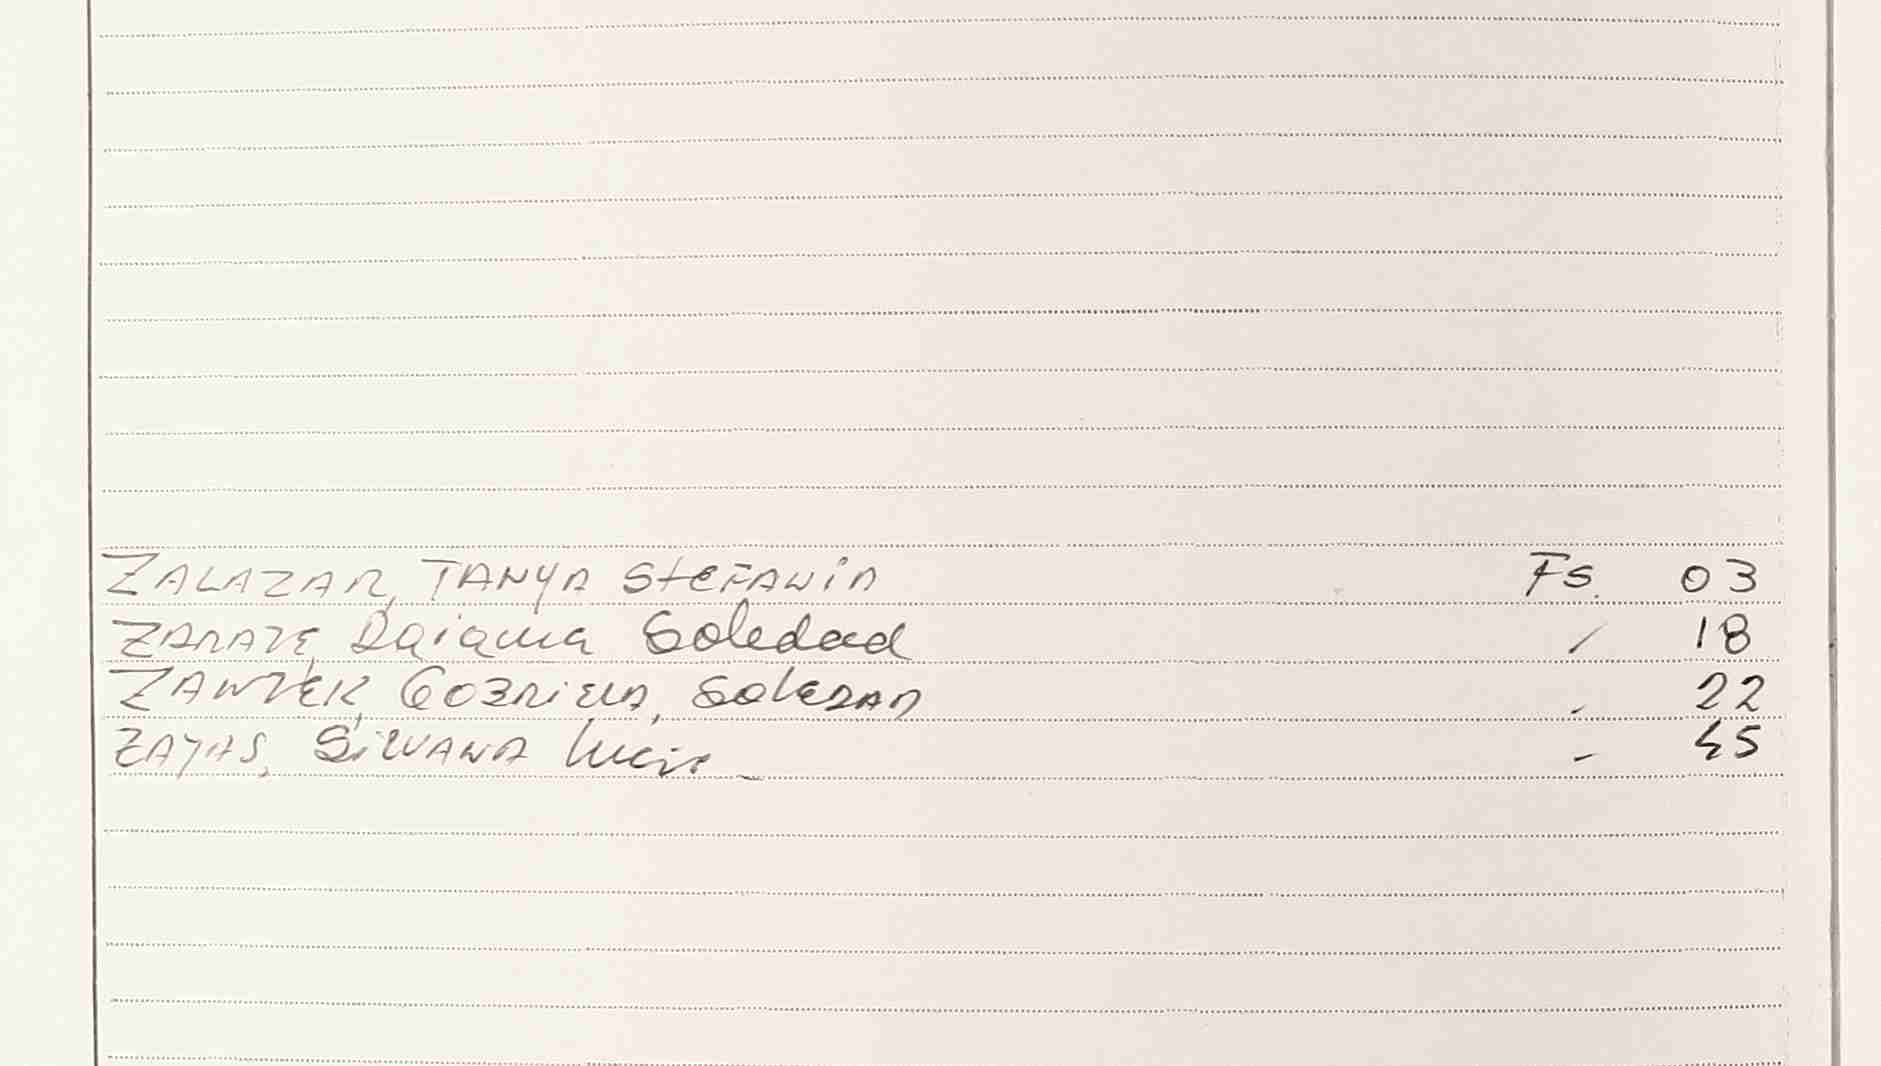 ZALAZAR, TANYA STEFANIA Fs. 03
ZARATE, Daiana Soledad " 18
Gabriela, Soledad " 22
ZAYAS, SILVANA Lucia - 45